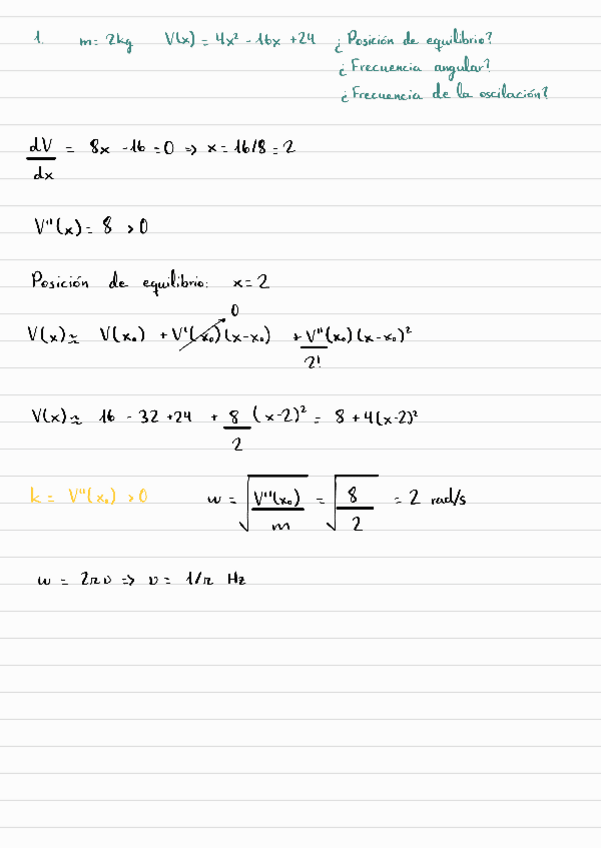 1. m = 2kg V(x) = 4x² - 16x + 24 ¿Posición de equilibrio?
¿Frecuencia angular?
¿Frecuencia de la oscilación?
dV/dx = 8x - 16 = 0 => x = 16/8 = 2
V''(x) = 8 > 0
Posición de equilibrio: x = 2
V(x) ≈ V(x₀) + V'(x₀)(x-x₀) + V''(x₀)/2! (x-x₀)²
0
V(x) ≈ 16 - 32 + 24 + 8/2 (x-2)² = 8 + 4(x-2)²
k = V''(x₀) > 0 w = √(V''(x₀)/m) = √(8/2) = 2 rad/s
w = 2πν => ν = 1/π Hz